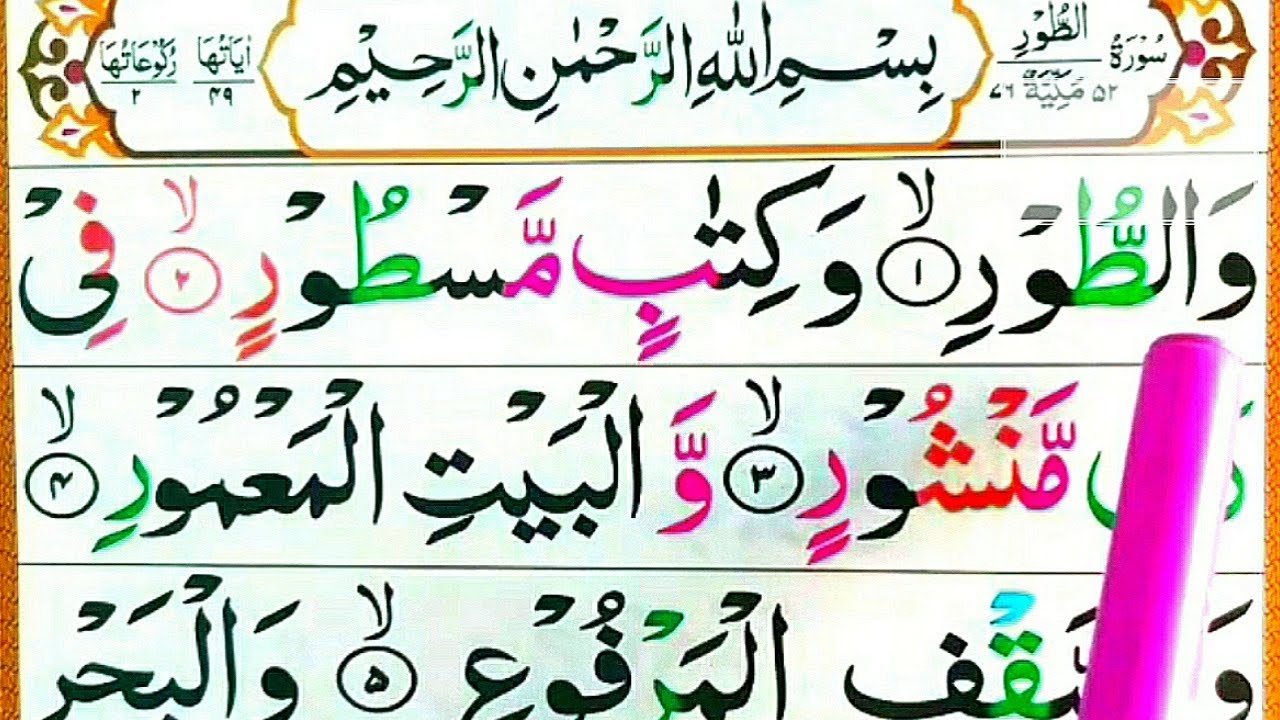 سُوْرَةُ الطُّوْرِ ٥٢ مَكِّيَّةٌ ٧٦
بِسْمِ اللهِ الرَّحْمٰنِ الرَّحِيْمِ
اٰيَاتُهَا ٤٩ رُكُوْعَاتُهَا ٢
وَالطُّوْرِ ۙ﴿١﴾ وَكِتٰبٍ مَّسْطُوْرٍ ۙ﴿٢﴾ فِيْ
مَّنْشُوْرٍ ۙ﴿٣﴾ وَّالْبَيْتِ الْمَعْمُوْرِ ۙ﴿٤﴾
الْمَرْفُوْعِ ۙ﴿٥﴾ وَالْبَحْرِ